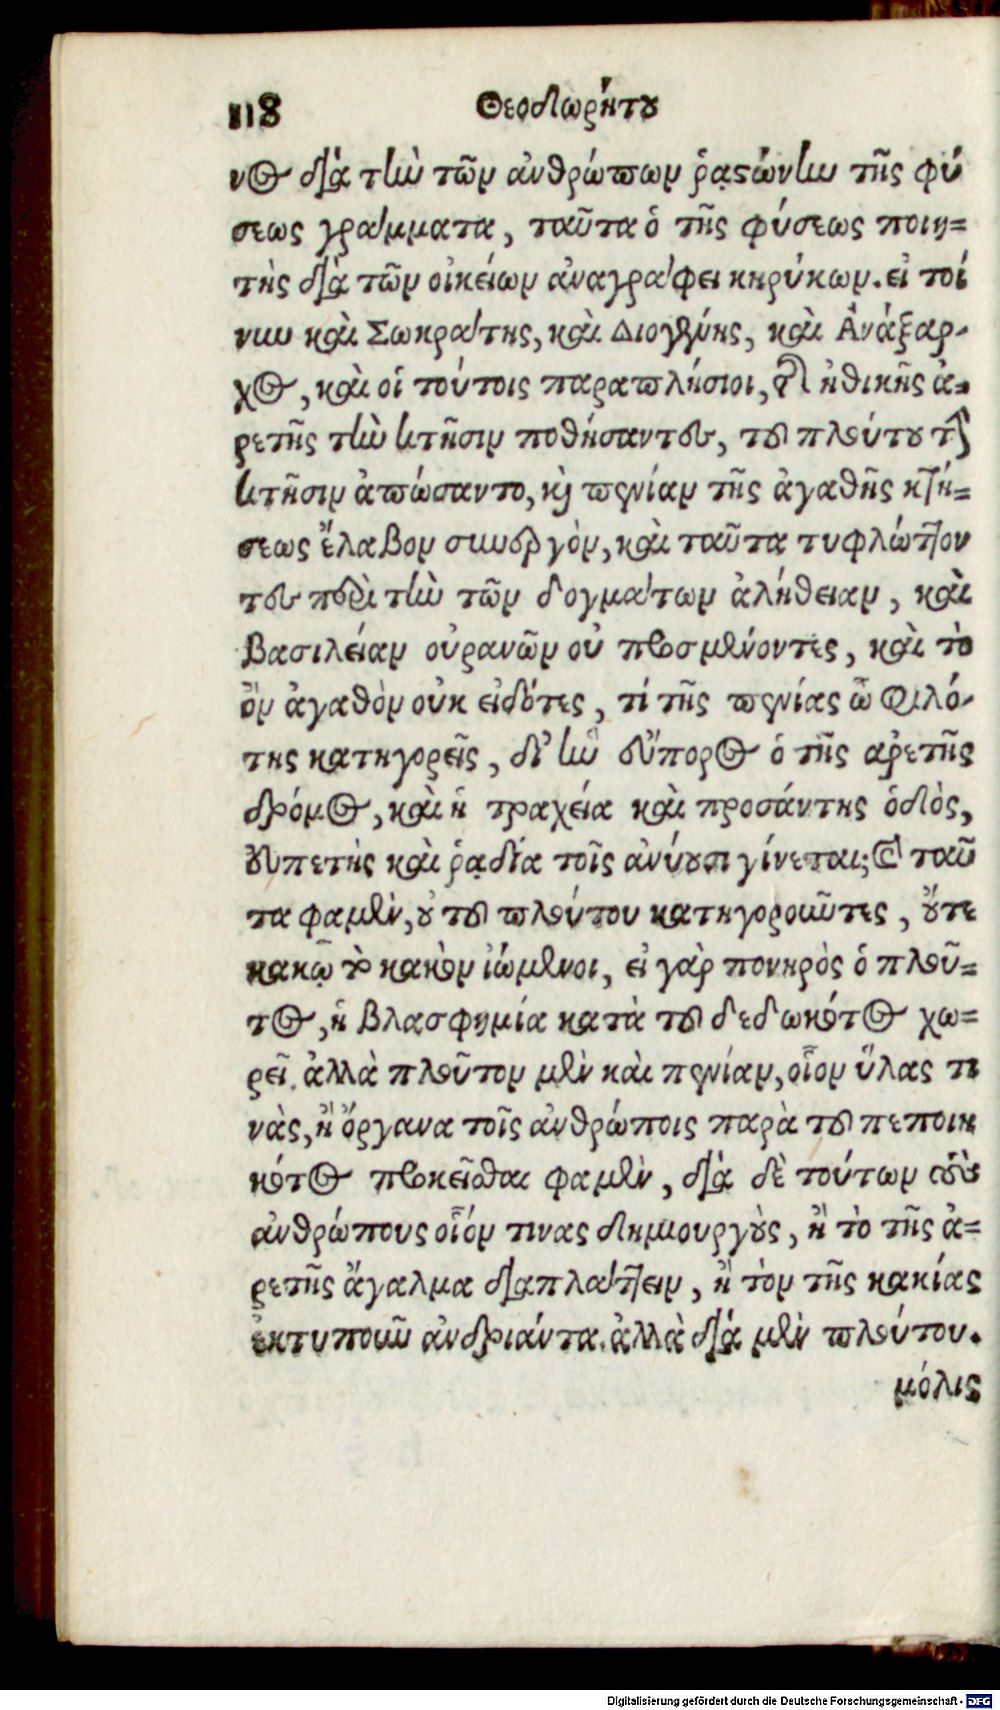 118 Θεοδωρήτου
νος διὰ τὴν τῶν ἀνθρώπων ῥᾳστώνην τῆς φύ
σεως γράμματα, ταῦτα ὁ τῆς φύσεως ποιη=
τὴς διὰ τῶν οἰκείων ἀναγράφει κηρύκων. εἰ τοί
νυν καὶ Σωκράτης, καὶ Διογένης, καὶ Ἀνάξαρ-
χος, καὶ οἱ τούτοις παραπλήσιοι, τῆς ἠθικῆς ἀ=
ρετῆς τὴν κτῆσιν ποθήσαντες, τοῦ πλούτου τὴν
κτῆσιν ἀπώσαντο, καὶ πενίαν τῆς ἀγαθῆς κτή=
σεως ἔλαβον συνεργὸν, καὶ ταῦτα τυφλώττον
τες περὶ τὴν τῶν δογμάτων ἀλήθειαν, καὶ
βασιλείαν οὐρανῶν οὐ προσμένοντες, καὶ τὸ
ὂν ἀγαθὸν οὐκ εἰδότες, τί τῆς πενίας ὦ φιλό-
της κατηγορεῖς, δι' ἣν εὔπορος ὁ τῆς ἀρετῆς
δρόμος, καὶ ἡ τραχεία καὶ προσάντης ὁδὸς,
εὐπετὴς καὶ ῥᾳδία τοῖς ἀνύουσι γίνεται; καὶ ταῦ
τα φαμὲν, οὐ τοῦ πλούτου κατηγοροῦντες, οὔτε
κακῷ τὸ κακὸν ἰώμενοι, εἰ γὰρ πονηρὸς ὁ πλοῦ=
τος, ἡ βλασφημία κατὰ τοῦ δεδωκότος χω=
ρεῖ. ἀλλὰ πλοῦτον μὲν καὶ πενίαν, οἷον ὕλας τι
νὰς, ἢ ὄργανα τοῖς ἀνθρώποις παρὰ τοῦ πεποιη
κότος προκεῖσθαι φαμὲν, διὰ δὲ τούτων τοὺς
ἀνθρώπους οἷόν τινας δημιουργοὺς, ἢ τὸ τῆς ἀ=
ρετῆς ἄγαλμα διαπλάττειν, ἢ τὸν τῆς κακίας
ἐκτυποῦν ἀνδριάντα. ἀλλὰ διὰ μὲν πλούτου.
μόλις
Digitalisierung gefördert durch die Deutsche Forschungsgemeinschaft - DFG